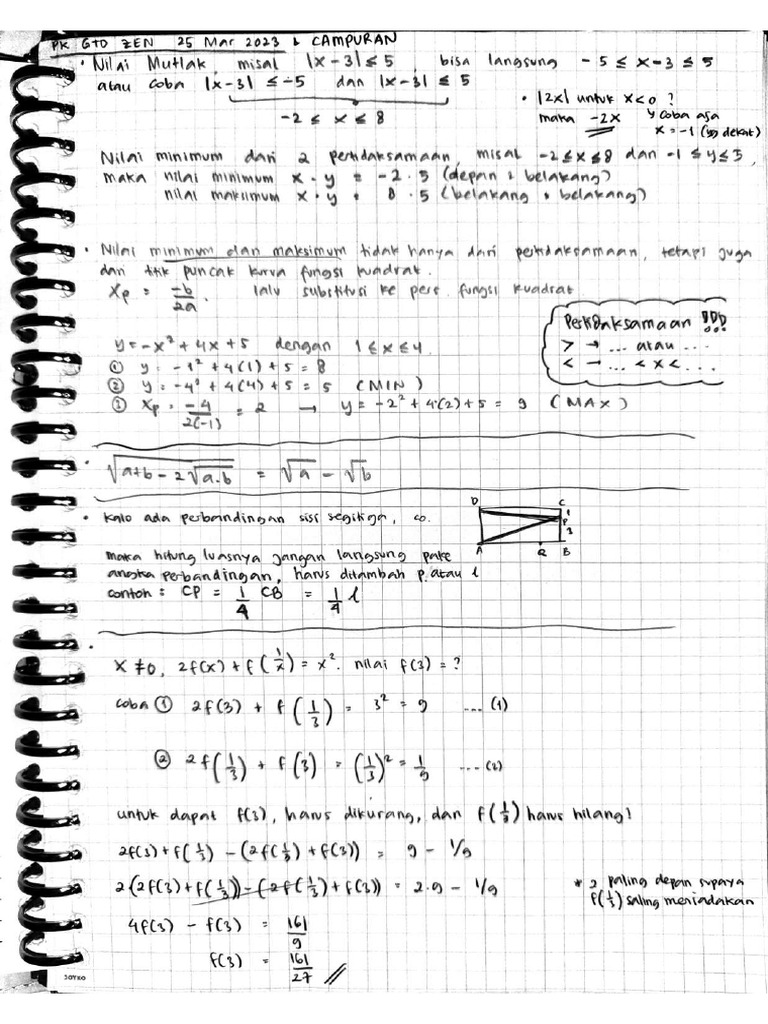 PK GTO ZEN 25 Mar 2023 & CAMPURAN
• Nilai Mutlak, misal |x-3| ≤ 5, bisa langsung -5 ≤ x-3 ≤ 5
atau coba |x-3| ≤ -5 dan |x-3| ≤ 5
-2 ≤ x ≤ 8
• |2x| untuk x<0 ?
maka -2x
y coba aja
x = -1 (yg dekat)
Nilai minimum dari 2 pertidaksamaan, misal -2≤x≤8 dan -1≤y≤5,
maka nilai minimum x·y = -2·5 (depan · belakang)
nilai maksimum x·y = 8·5 (belakang · belakang)
• Nilai minimum dan maksimum tidak hanya dari pertidaksamaan, tetapi juga
dari titik puncak kurva fungsi kuadrat.
Xp = -b/2a, lalu substitusi ke pers. fungsi kuadrat
Pertidaksamaan !!!
> → ... atau ...
< → ... < x < ...
y = -x² + 4x + 5 dengan 1 ≤ x ≤ 4
① y = -1² + 4(1) + 5 = 8
② y = -4² + 4(4) + 5 = 5 (MIN)
③ Xp = -4/2(-1) = 2 → y = -2² + 4·(2) + 5 = 9 (MAX)
• √(a+b-2√(a.b)) = √a - √b
• Kalo ada perbandingan sisi segitiga, co.
D C
1
P
3
A Q B
maka hitung luasnya jangan langsung pake
angka perbandingan, harus ditambah p atau l
contoh : CP = 1/4 CB = 1/4 l
• x ≠ 0, 2f(x) + f(1/x) = x². nilai f(3) = ?
coba ① 2f(3) + f(1/3) = 3² = 9 .... (1)
② 2f(1/3) + f(3) = (1/3)² = 1/9 .... (2)
untuk dapat f(3), harus dikurang, dan f(1/3) harus hilang!
2f(3) + f(1/3) - (2f(1/3) + f(3)) = 9 - 1/9
2(2f(3) + f(1/3)) - (2f(1/3) + f(3)) = 2·9 - 1/9
* 2 paling depan supaya
f(1/3) saling meniadakan
4f(3) - f(3) = 161/9
f(3) = 161/27 //
JOYKO